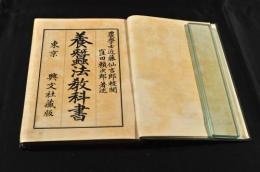 農學士近藤仙吉郎校閲
窪田頼次郎著述
養蠶法教科書
東京 興文社藏版